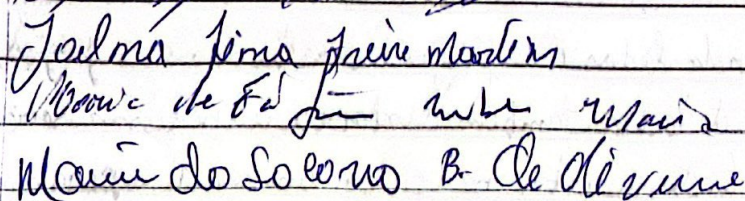 Joelma Lima Freire Martins
Maria de Fá
Maria do Socorro B. de Oliveira